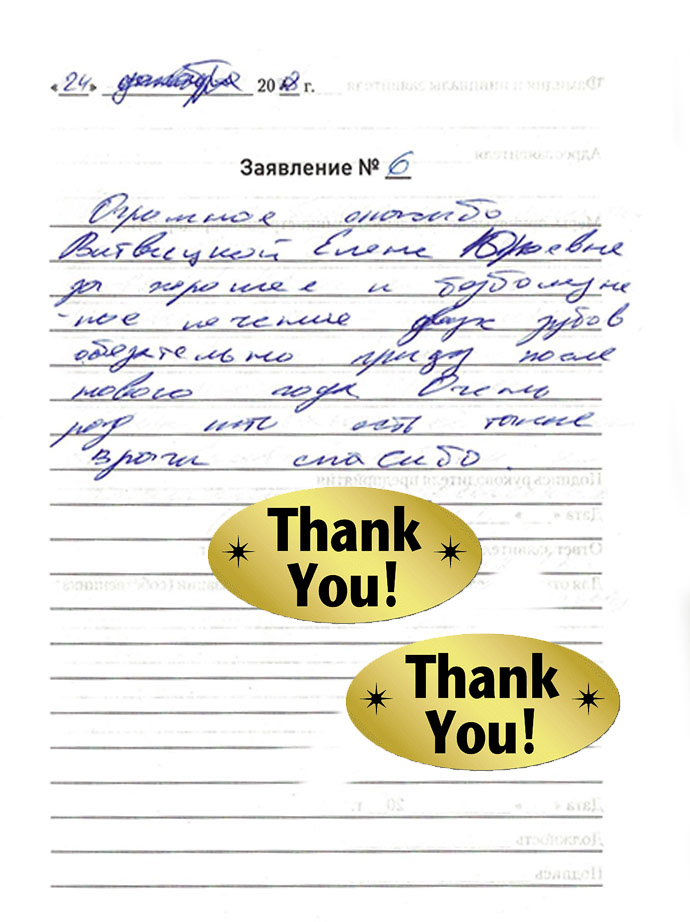 «24» декабря 2018 г.
Заявление № 6
Огромное спасибо
Витвицкой Елене Юрьевне
за хорошее и безболезне
-ное лечение двух зубов
обязательно приду после
нового года Очень
рад что есть такие
врачи спасибо.
Thank
You!
Thank
You!